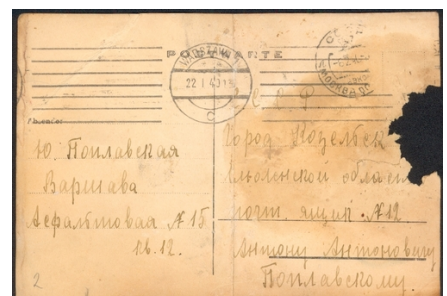 POSTKARTE
WARSZAWA
22 I 40
C
МОСКВА
С С С Р
Absender
Ю. Поплавская
Варшава
Асфальтовая № 15
кв. 12.
Город Козельск
Смоленской области
почт. ящик № 12
Антону Антоновичу
Поплавскому.
2